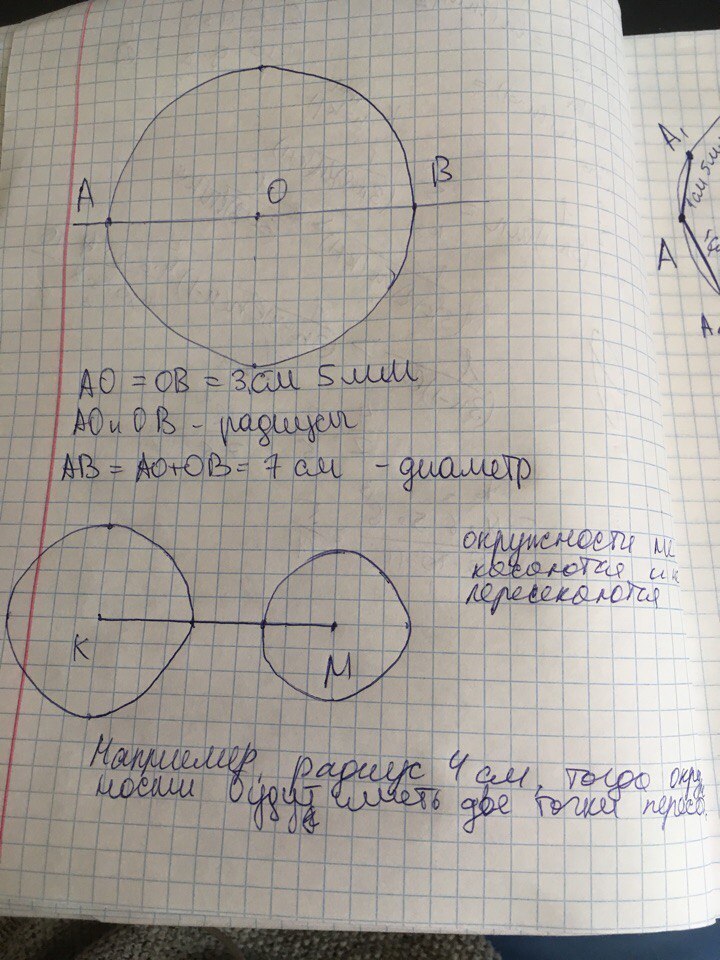 A
O
B
AO = OB = 3 см 5 мм
AO и OB - радиусы
AB = AO+OB = 7 см - диаметр
K
M
окружности
касаются и
пересекаются
Например, радиус 4 см, тогда окру
ности будут иметь две точки
A₁
A